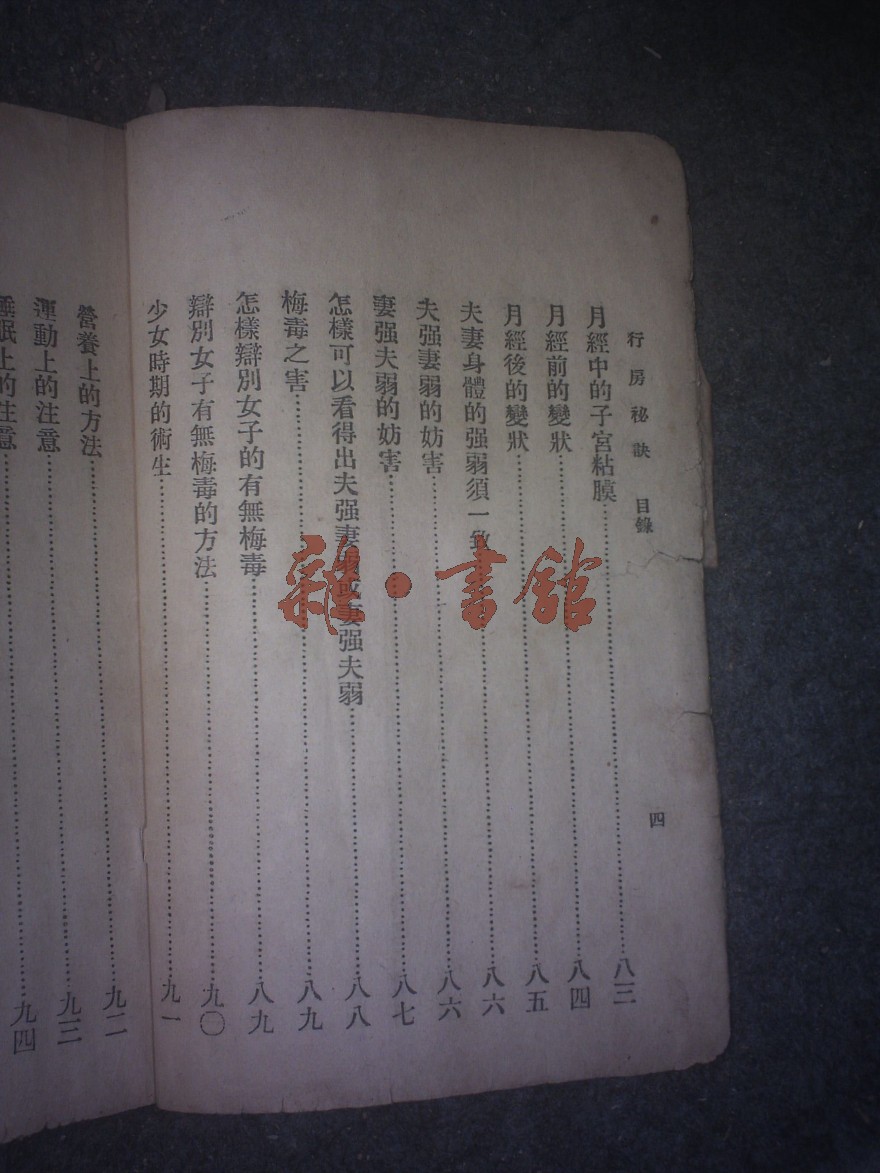 行房祕訣 目錄
四
月經中的子宮粘膜……八三
月經前的變狀……八四
月經後的變狀……八五
夫妻身體的强弱須一致……八六
夫强妻弱的妨害……八六
妻强夫弱的妨害……八七
怎樣可以看得出夫强妻弱或妻强夫弱……八八
梅毒之害……八九
怎樣辯別女子的有無梅毒……八九
辯別女子有無梅毒的方法……九〇
少女時期的術生……九一
營養上的方法……九二
運動上的注意……九三
睡眠上的注意……九四
雜·書館